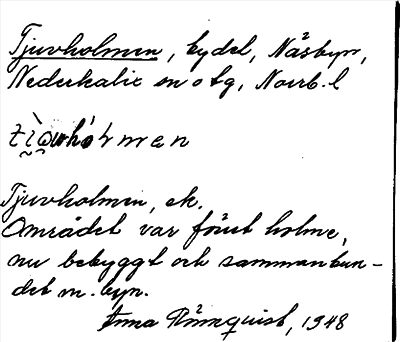 Tjuvholmen, bydel, Näsbyn,
Nederkalix sn o tg, Norrb. l
Tjuvholmen, ek.
Området var förut holme,
nu bebyggt och sammanbun-
det m. byn.
Anna Rönnquist, 1948